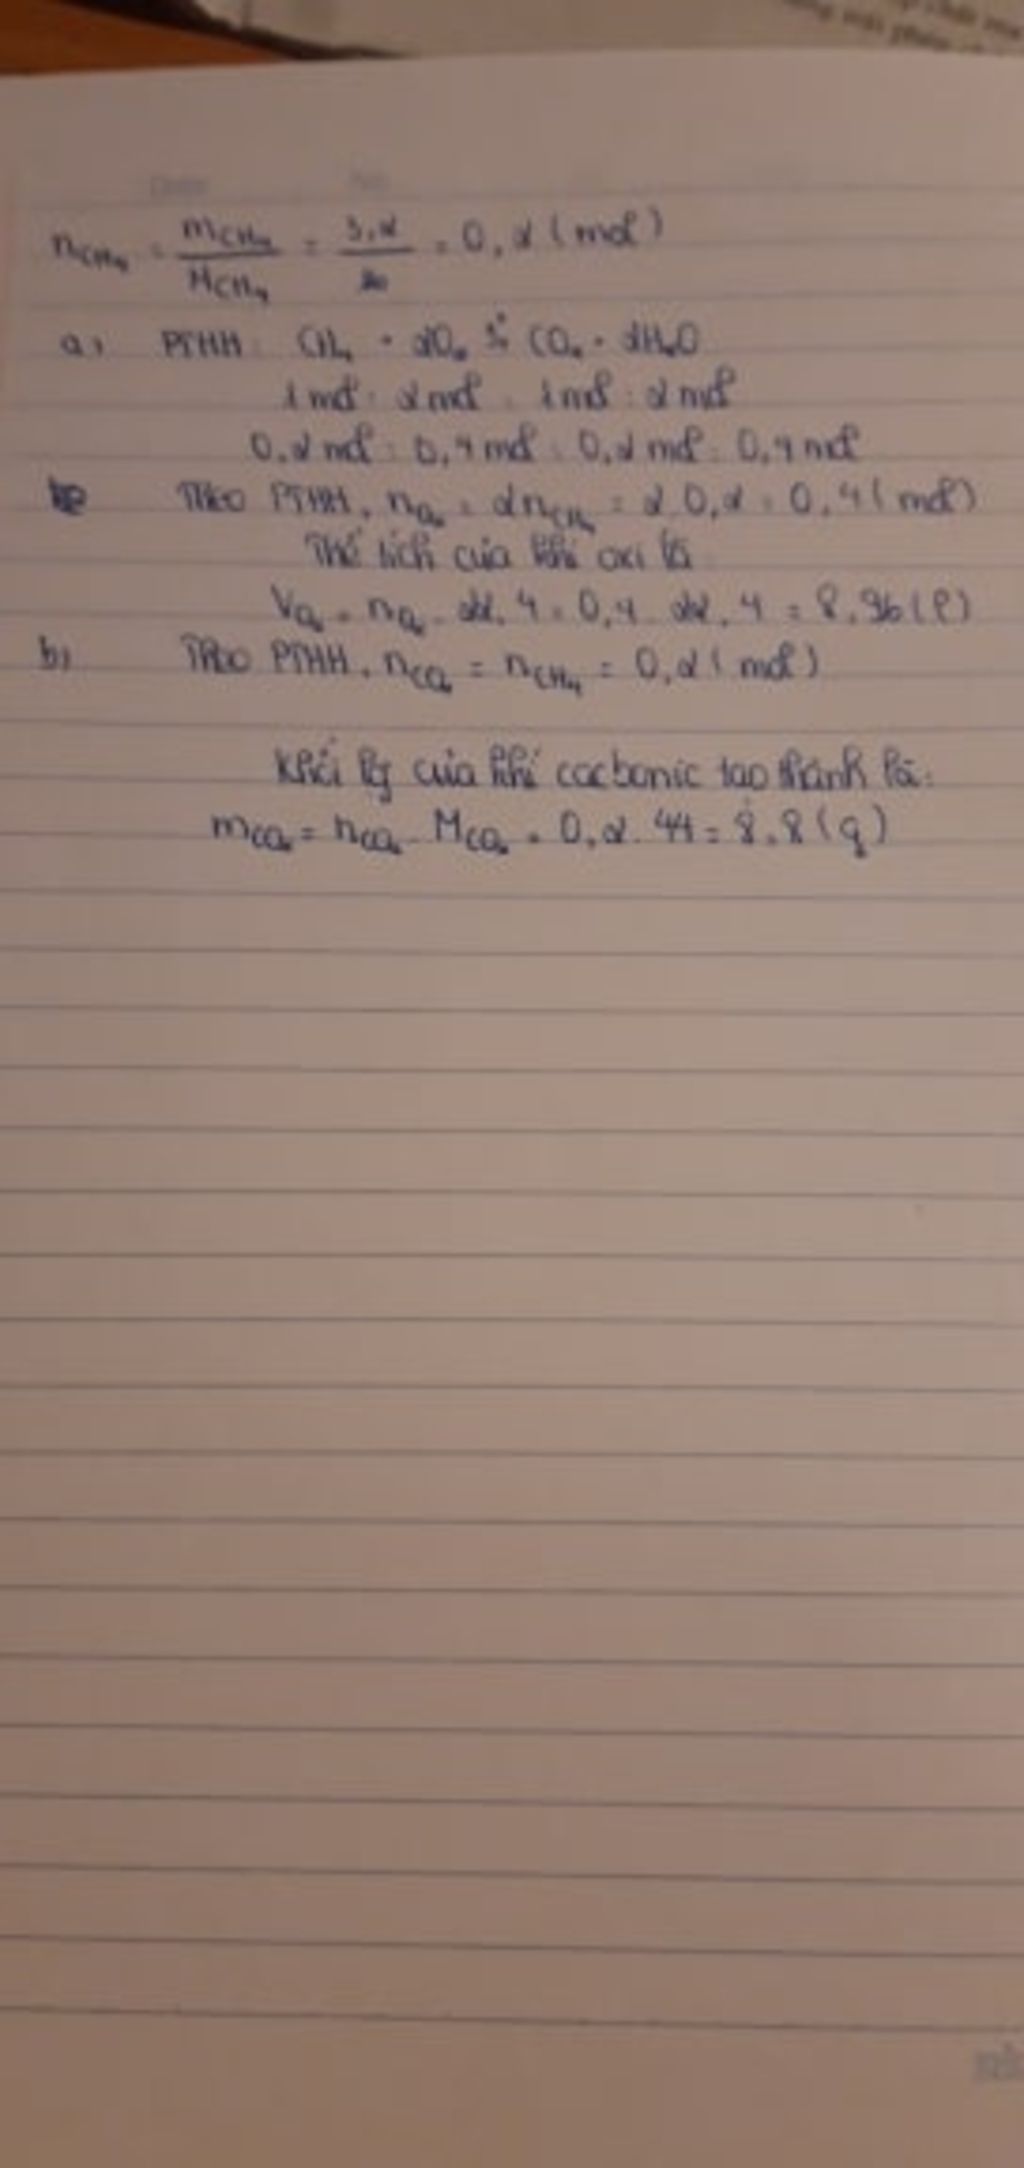 nCH₄ = mCH₄ / MCH₄ = 3,2 / = 0,2 (mol)
a, PTHH: CH₄ + 2O₂ t° CO₂ + 2H₂O
1 mol : 2 mol : 1 mol : 2 mol
0,2 mol : 0,4 mol : 0,2 mol : 0,4 mol
Theo PTHH, nO₂ = 2nCH₄ = 2.0,2 = 0,4 (mol)
Thể tích của khí oxi là
VO₂ = nO₂ . 22,4 = 0,4 . 22,4 = 8,96 (l)
b, Theo PTHH, nCO₂ = nCH₄ = 0,2 (mol)
Khối lg của khí cacbonic tạo thành là:
mCO₂ = nCO₂ . MCO₂ = 0,2 . 44 = 8,8 (g)